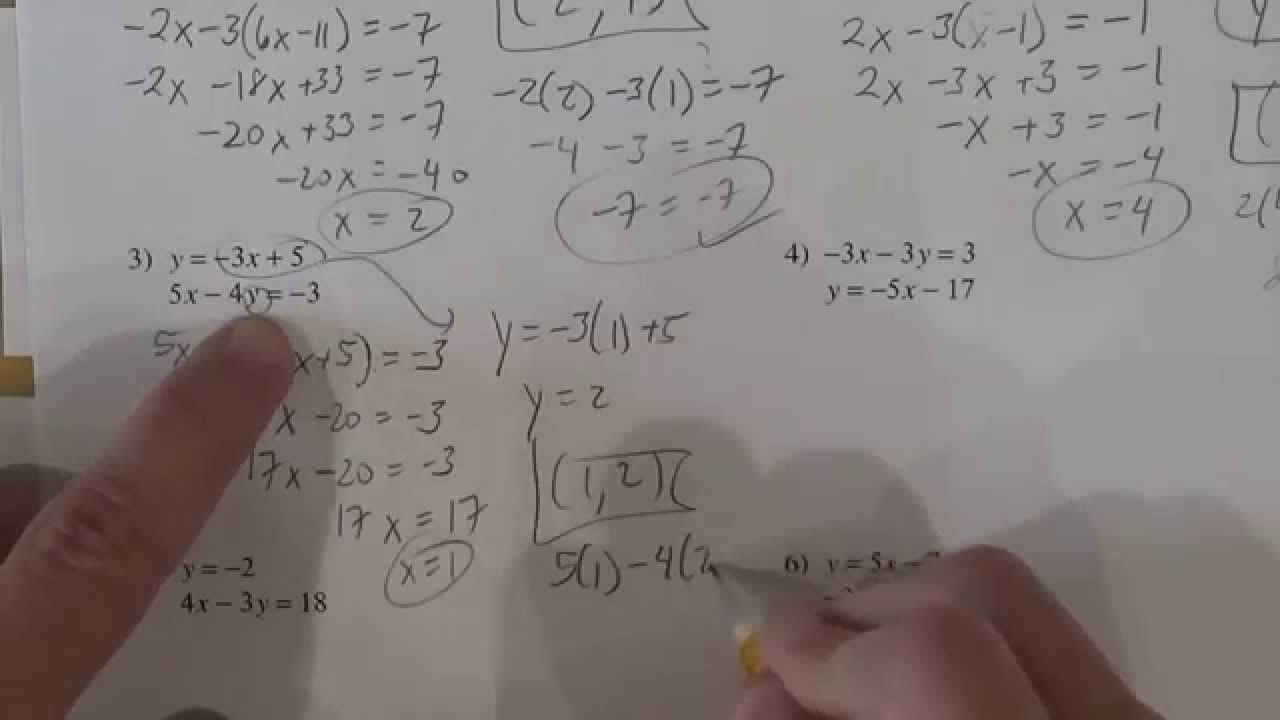 -2x-3(6x-11) = -7
-2x -18x+33 = -7
-20x+33 = -7
-20x = -40
x = 2
(2,1)
-2(2) -3(1) = -7
-4 -3 = -7
-7 = -7
2x -3(x-1) = -1
2x -3x +3 = -1
-x +3 = -1
-x = -4
x = 4
y
(
2(
3) y = -3x + 5
5x - 4y = -3
5x x+5) = -3
x -20 = -3
17x -20 = -3
17x = 17
x=1
y = -3(1) +5
y = 2
(1,2)
5(1) -4(2
4) -3x - 3y = 3
y = -5x - 17
y = -2
4x - 3y = 18
6) y = 5x -